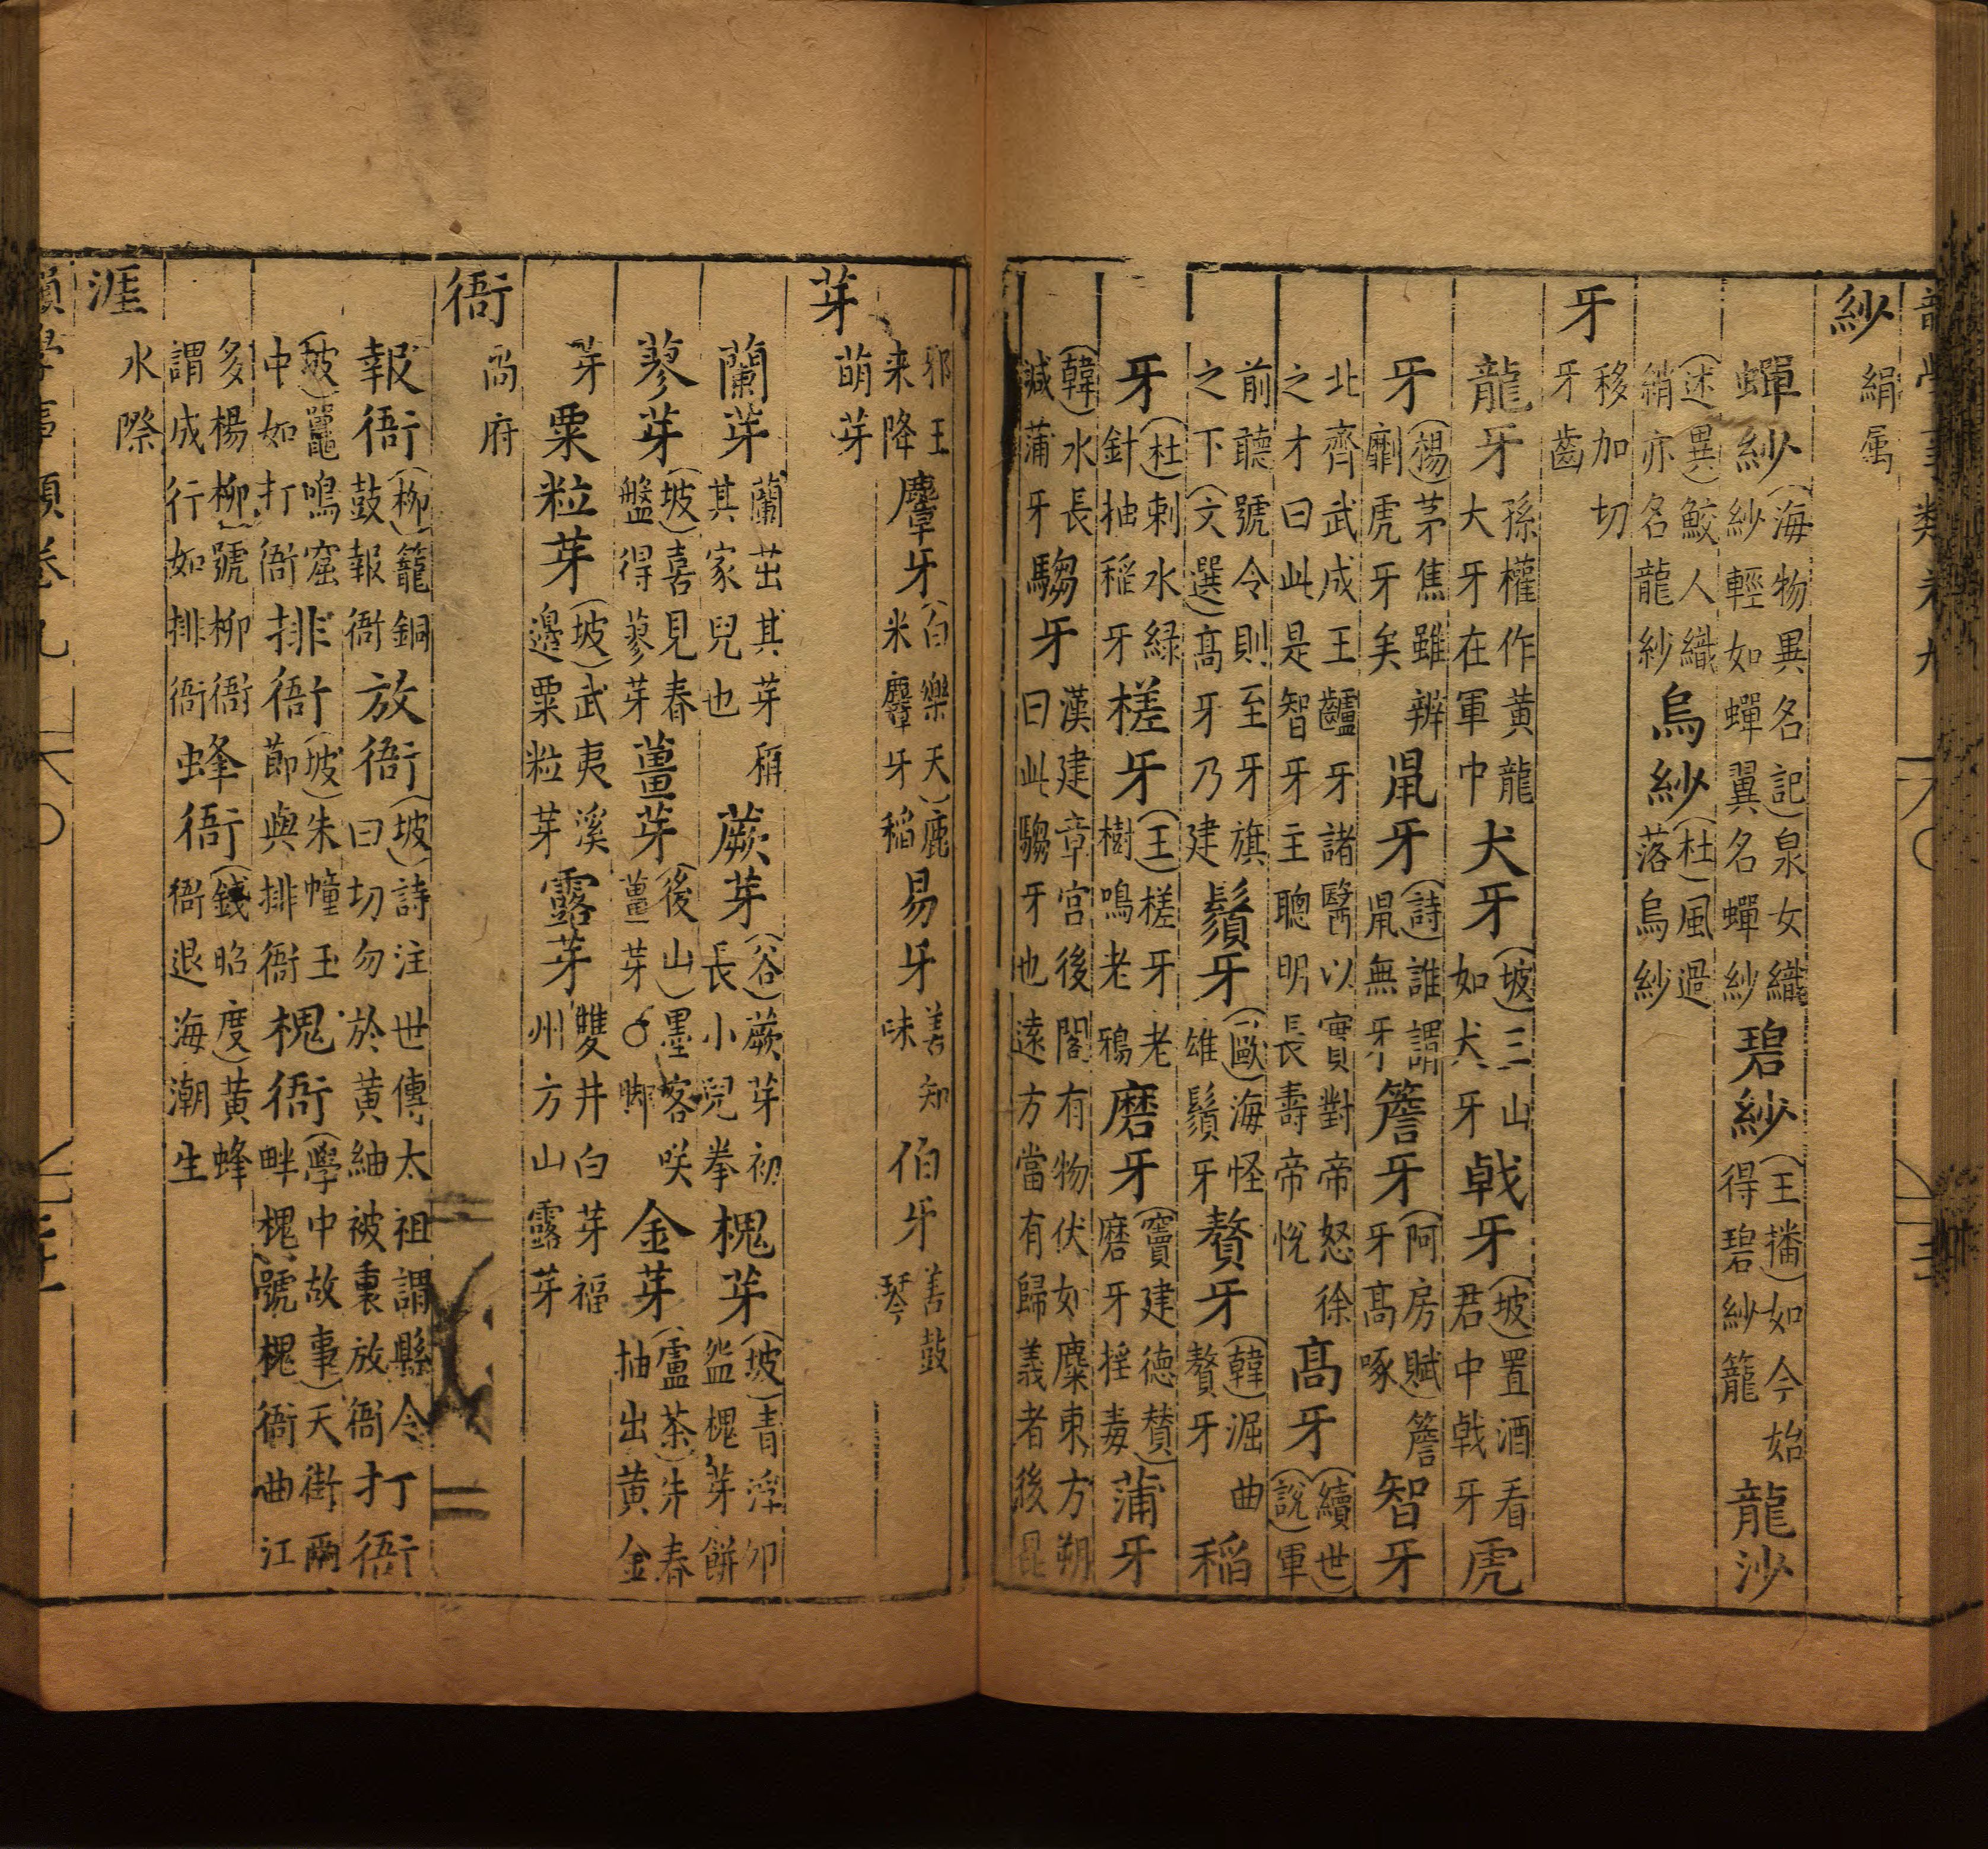 紗 絹屬
蟬紗 (海物異名記)泉女織紗輕如蟬翼名蟬紗 碧紗 (王播)如今始得碧紗籠 龍沙
(述異)鮫人織綃亦名龍紗 烏紗 (杜)風過落烏紗
牙 移加切牙齒
龍牙 孫權作黃龍大牙在軍中 犬牙 (坡)三山如犬牙 戟牙 (坡)置酒看君中戟牙 虎
牙 (揚)茅焦雖辨劘虎牙矣 鼠牙 (詩)誰謂鼠無牙 簷牙 (阿房賦)簷牙髙啄 智牙
北齊武成王齇牙諸醫以實對帝怒徐之才曰此是智牙主聰明長壽帝悅 髙牙 (續世說)軍
前聽號令則至牙旗之下(文選)髙牙乃建 鬚牙 (歐)海怪雄鬚牙 贅牙 (韓)淈曲贅牙 稻
牙 (杜)刺水緑針抽稻牙 槎牙 (王)槎牙老樹鳴老鴉 磨牙 (竇建德賛)磨牙揺毒 蒲牙
(韓)水長緘蒲牙 騶牙 漢建章宮後閣有物伏如麋東方朔曰此騶牙也遠方當有歸義者後昆
邪王来降 麞牙 (白樂天)鹿米麞牙稻 易牙 善知味 伯牙 善鼓琴
芽 萌芽
蘭芽 蘭茁其芽稱其家兒也 蕨芽 (谷)蕨芽初長小兒拳 槐芽 (坡)青浮卯盌槐芽餅
蓼芽 (坡)喜見春盤得蓼芽 薑芽 (後山)墨客咲薑芽脚 金芽 (盧茶)先春抽出黃金
芽 粟粒芽 (坡)武夷溪邊粟粒芽 露芽 雙井白芽福州方山露芽
衙 府
報衙 (柳)籠銅鼓報衙 放衙 (坡)詩注世傳太祖謂縣令曰切勿於黃紬被裏放衙 打衙
(坡)鼉鳴窟中如打衙 排衙 (坡)朱幢玉節與排衙 槐衙 (學中故事)天街兩畔槐號槐衙曲江
多楊柳號柳衙謂成行如排衙 蜂衙 (錢昭度)黃蜂衙退海潮生
涯 水際
類卷九